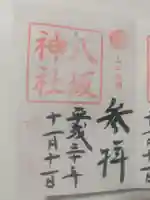 参拝
八坂
神社
平成三十年
十一月十一日